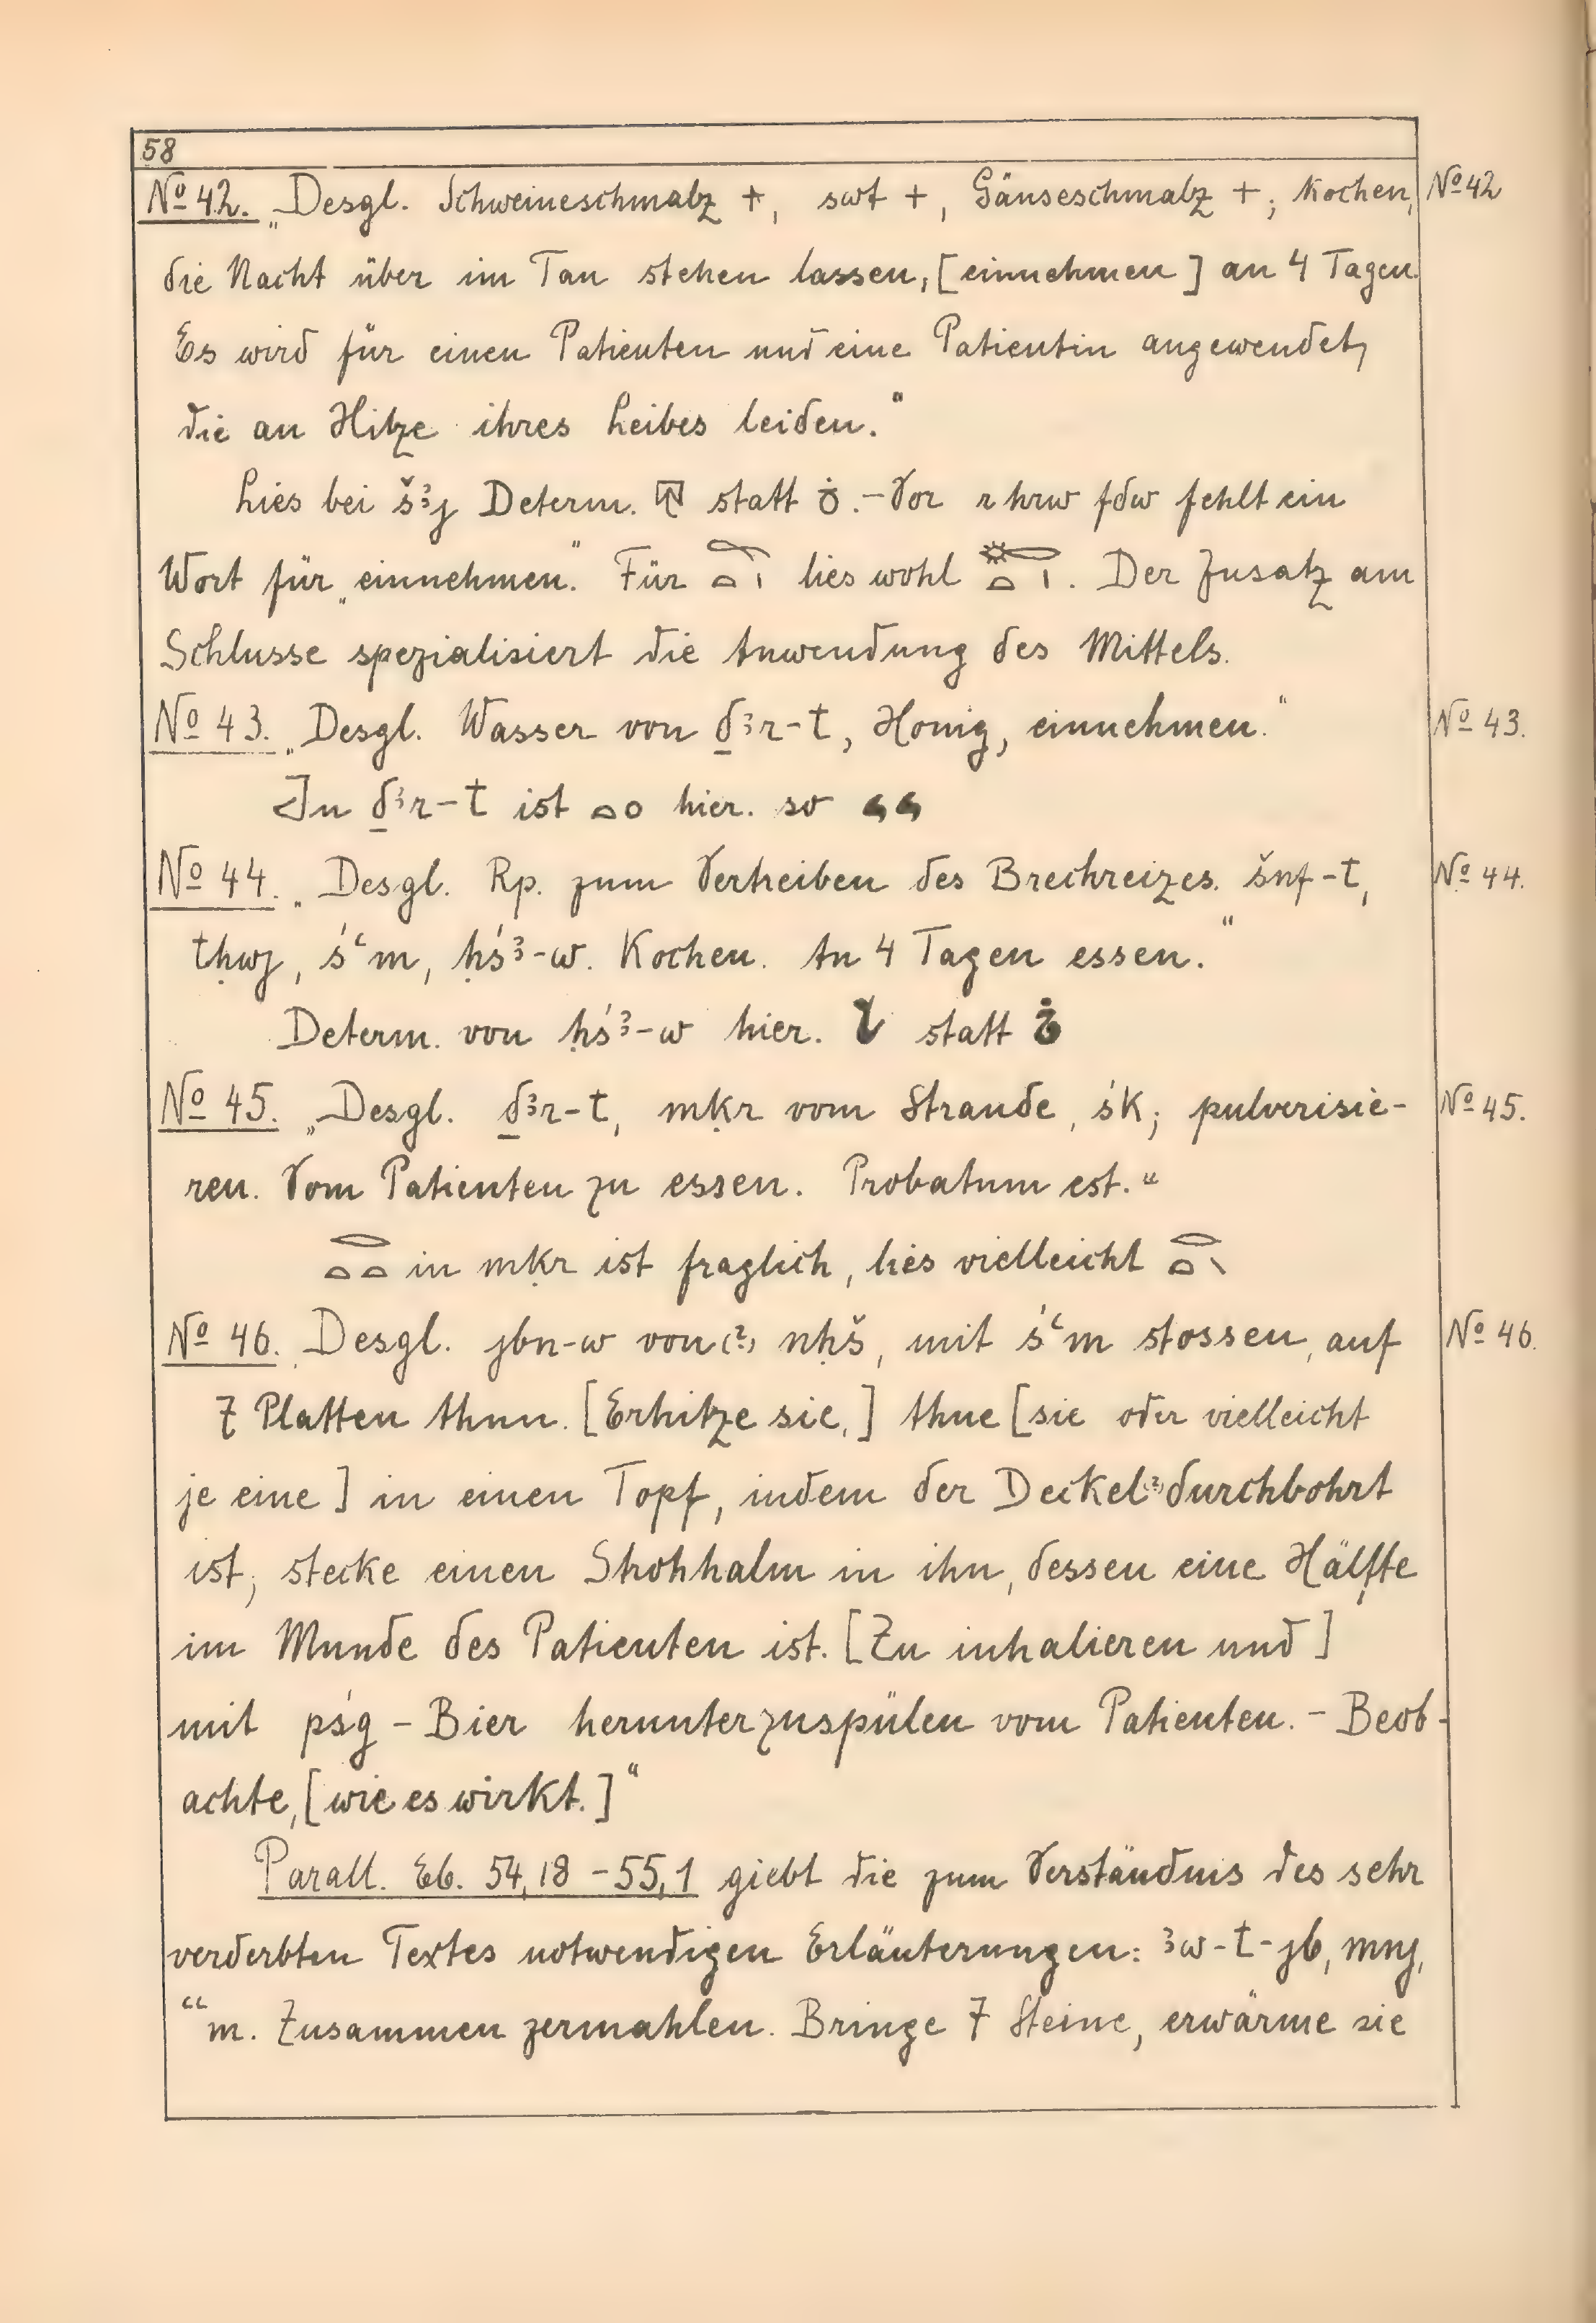 58
№ 42. „Desgl. Schweineschmalz +, swt +, Gänseschmalz +; Kochen, № 42
die Nacht über im Tau stehen lassen, [einnehmen] an 4 Tagen.
Es wird für einen Patienten und eine Patientin angewendet,
die an Hitze ihres Leibes leiden."
Lies bei šꜣj Determ. statt . – Vor r hrw fdw fehlt ein
Wort für „einnehmen." Für 𓂋𓏏𓏤 lies wohl . Der Zusatz am
Schlusse spezialisiert die Anwendung des Mittels.
№ 43. „Desgl. Wasser von ḏꜣr-t, Honig, einnehmen." № 43.
In ḏꜣr-t ist hier. so
№ 44. „Desgl. Rp. zum Vertreiben des Brechreizes. šnf-t, № 44.
tḥwj, śꜥm, ḥśꜣ-w. Kochen. An 4 Tagen essen."
Determ. von ḥśꜣ-w hier. statt
№ 45. „Desgl. ḏꜣr-t, mḳr vom Strande, śk; pulverisie- № 45.
ren. Vom Patienten zu essen. Probatum est."
𓂋𓏏𓏏 in mḳr ist fraglich, lies vielleicht 𓂋𓏏\
№ 46. „Desgl. jbn-w von (?) nḥš, mit śꜥm stossen, auf № 46.
7 Platten thun. [Erhitze sie,] thue [sie oder vielleicht
je eine] in einen Topf, indem der Deckel (?) durchbohrt
ist; stecke einen Strohhalm in ihn, dessen eine Hälfte
im Munde des Patienten ist. [Zu inhalieren und]
mit pśg – Bier herunterzuspülen vom Patienten. – Beob-
achte, [wie es wirkt.]"
Parall. Eb. 54,18 – 55,1 giebt die zum Verständnis des sehr
verderbten Textes notwendigen Erläuterungen: ꜣw-t-jb, mnj,
ꜥꜥm. Zusammen zermahlen. Bringe 7 Steine, erwärme sie